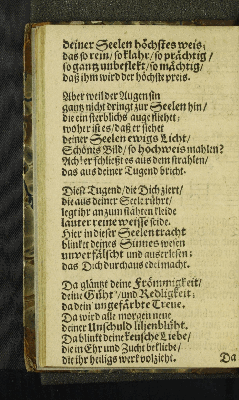 deiner Seelen höchstes weis;
das so rein/ so klahr/ so prächtig/
so gantz unbeflekt/ so mächtig/
daß ihm wird der höchste preis.
Aber weil der Augen sin
gantz nicht dringt zur Seelen hin/
die ein sterblichs aug ersiehet;
woher ist es/ daß er siehet
deiner Seelen ewigs Licht/
Schönes Bild/ so hochweis mahlen?
Ach! er schließt es aus dem strahlen/
das aus deiner Tugend bricht.
Diese Tugend/ die Dich ziert/
die aus deiner Seele rührt/
legt ihr an zum kleide
lauter reine weisse seide.
Hier in dieser Seelen tracht
blinket deines Sinnes wesen
unverfälscht und auserlesen;
das Dich durchaus edel macht.
Da gläntzt deine Frömmigkeit/
deine Güht'/ und Redligkeit;
da dein ungefärbte Treue.
Da wird alle morgen neue
deiner Unschuld liljenblüht.
Da blinkt deine keusche Liebe/
die in Ehr und Zucht bekliebe/
die ihr heiligs werk volzieht.
Da